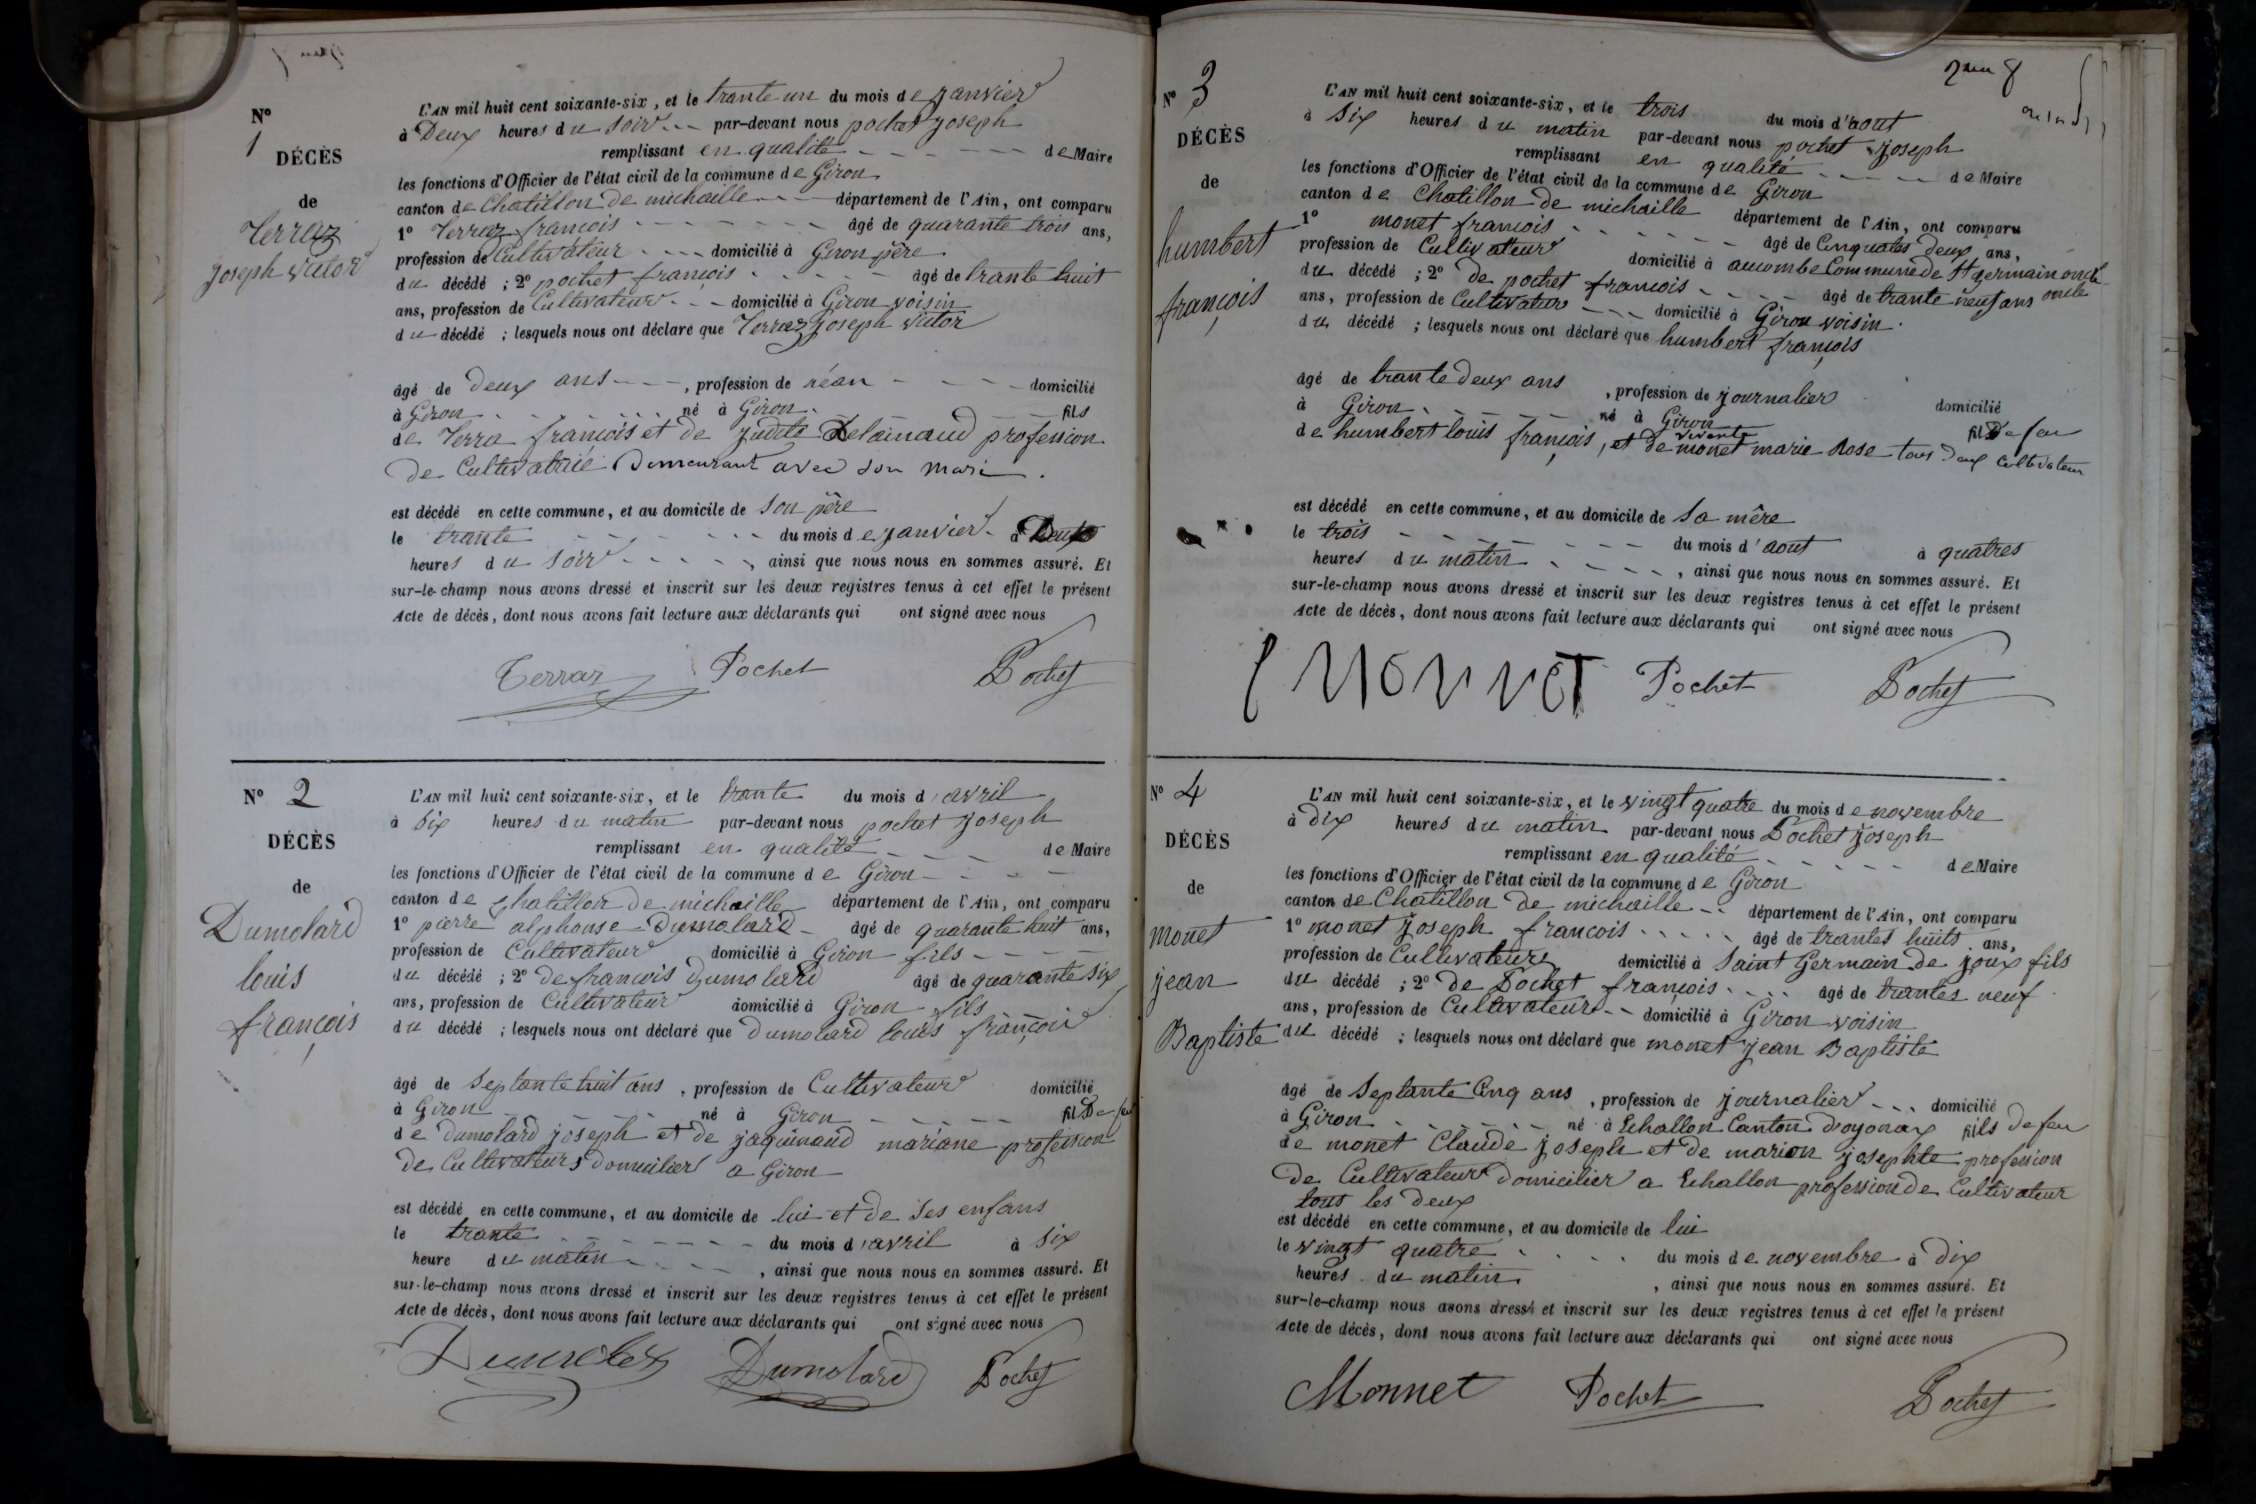 N°
1
DÉCÈS
de
Terraz
joseph victor
L'AN mil huit cent soixante-six, et le trante un du mois de janvier
à Deux heures du soir par-devant nous pochet joseph
remplissant en qualité de Maire
les fonctions d'Officier de l'état civil de la commune de Giron
canton de Chatillon de michaille département de l'Ain, ont comparu
1° Terraz francois âgé de quarante trois ans,
profession de Cultivateur domicilié à Giron père
du décédé ; 2° pochet françois âgé de trante huit
ans, profession de Cultivateur domicilié à Giron voisin
du décédé ; lesquels nous ont déclaré que Terraz joseph victor
âgé de deux ans, profession de néan domicilié
à Giron né à Giron fils
de Terra françois et de judite Delainaud profession
de Cultivatrice Demeurant avec son mari.
est décédé en cette commune, et au domicile de son père
le trante du mois de janvier à Deux
heures du soir, ainsi que nous nous en sommes assuré. Et
sur-le-champ nous avons dressé et inscrit sur les deux registres tenus à cet effet le présent
Acte de décès, dont nous avons fait lecture aux déclarants qui ont signé avec nous
Terraz Pochet Pochet
N° 2
DÉCÈS
de
Dumolard
louis
françois
L'AN mil huit cent soixante-six, et le trante du mois d'avril
à Six heures du matin par-devant nous pochet joseph
remplissant en qualité de Maire
les fonctions d'Officier de l'état civil de la commune de Giron
canton de Chatillon de michaille département de l'Ain, ont comparu
1° pierre alphonse Dumolard âgé de quarante huit ans,
profession de Cultivateur domicilié à Giron fils
du décédé ; 2° de francois Dumolard âgé de quarante six
ans, profession de Cultivateur domicilié à Giron fils
du décédé ; lesquels nous ont déclaré que dumolard louis françois
âgé de septante huit ans, profession de Cultivateur domicilié
à Giron né à Giron fil De feu
de Dumolard joseph et de jaquinaud mariane profession
de Cultivateurs domicilier a Giron
est décédé en cette commune, et au domicile de lui et de ses enfans
le trante du mois d'avril à six
heure du matin, ainsi que nous nous en sommes assuré. Et
sur-le-champ nous avons dressé et inscrit sur les deux registres tenus à cet effet le présent
Acte de décès, dont nous avons fait lecture aux déclarants qui ont signé avec nous
Dumolard Pochet
N° 3
DÉCÈS
de
humbert
françois
L'AN mil huit cent soixante-six, et le trois du mois d'aout
à Six heures du matin par-devant nous pochet joseph
remplissant en qualité de Maire
les fonctions d'Officier de l'état civil de la commune de Giron
canton de Chatillon de michaille département de l'Ain, ont comparu
1° monet francois âgé de Cinquates deux ans,
profession de Cultivateur domicilié à aucombe Commune de St germain oncle
du décédé ; 2° De pochet francois âgé de trante neuf ans oncle
ans, profession de Cultivateur domicilié à Giron voisin.
du décédé ; lesquels nous ont déclaré que humbert françois
âgé de trante deux ans, profession de journalier domicilié
à Giron né à Giron fil De feu
vivante
de humbert louis françois, et de monet marie Rose tous deux cultivateur
est décédé en cette commune, et au domicile de sa mère
le trois du mois d'aout à quatres
heures du matin, ainsi que nous nous en sommes assuré. Et
sur-le-champ nous avons dressé et inscrit sur les deux registres tenus à cet effet le présent
Acte de décès, dont nous avons fait lecture aux déclarants qui ont signé avec nous
MONNET Pochet Pochet
N° 4
DÉCÈS
de
monet
jean
Baptiste
L'AN mil huit cent soixante-six, et le vingt quatre du mois de novembre
à Dix heures du matin par-devant nous Pochet joseph
remplissant en qualité de Maire
les fonctions d'Officier de l'état civil de la commune de Giron
canton de Chatillon de michaille département de l'Ain, ont comparu
1° monet joseph francois âgé de trantes huits ans,
profession de Cultivateur domicilié à Saint Germain de joux fils
du décédé ; 2° De Pochet françois âgé de trantes neuf
ans, profession de Cultivateur domicilié à Giron voisin
du décédé ; lesquels nous ont déclaré que monet jean Baptiste
âgé de septante Cinq ans, profession de journalier domicilié
à Giron né à Echallon Canton Doyonax fils De feu
de monet Claude joseph et de marion josephte profession
de Cultivateur domicilier a Echallon profession de Cultivateur
tous les deux
est décédé en cette commune, et au domicile de lui
le vingt quatre du mois de novembre à Dix
heures du matin, ainsi que nous nous en sommes assuré. Et
sur-le-champ nous avons dressé et inscrit sur les deux registres tenus à cet effet le présent
Acte de décès, dont nous avons fait lecture aux déclarants qui ont signé avec nous
Monnet Pochet Pochet